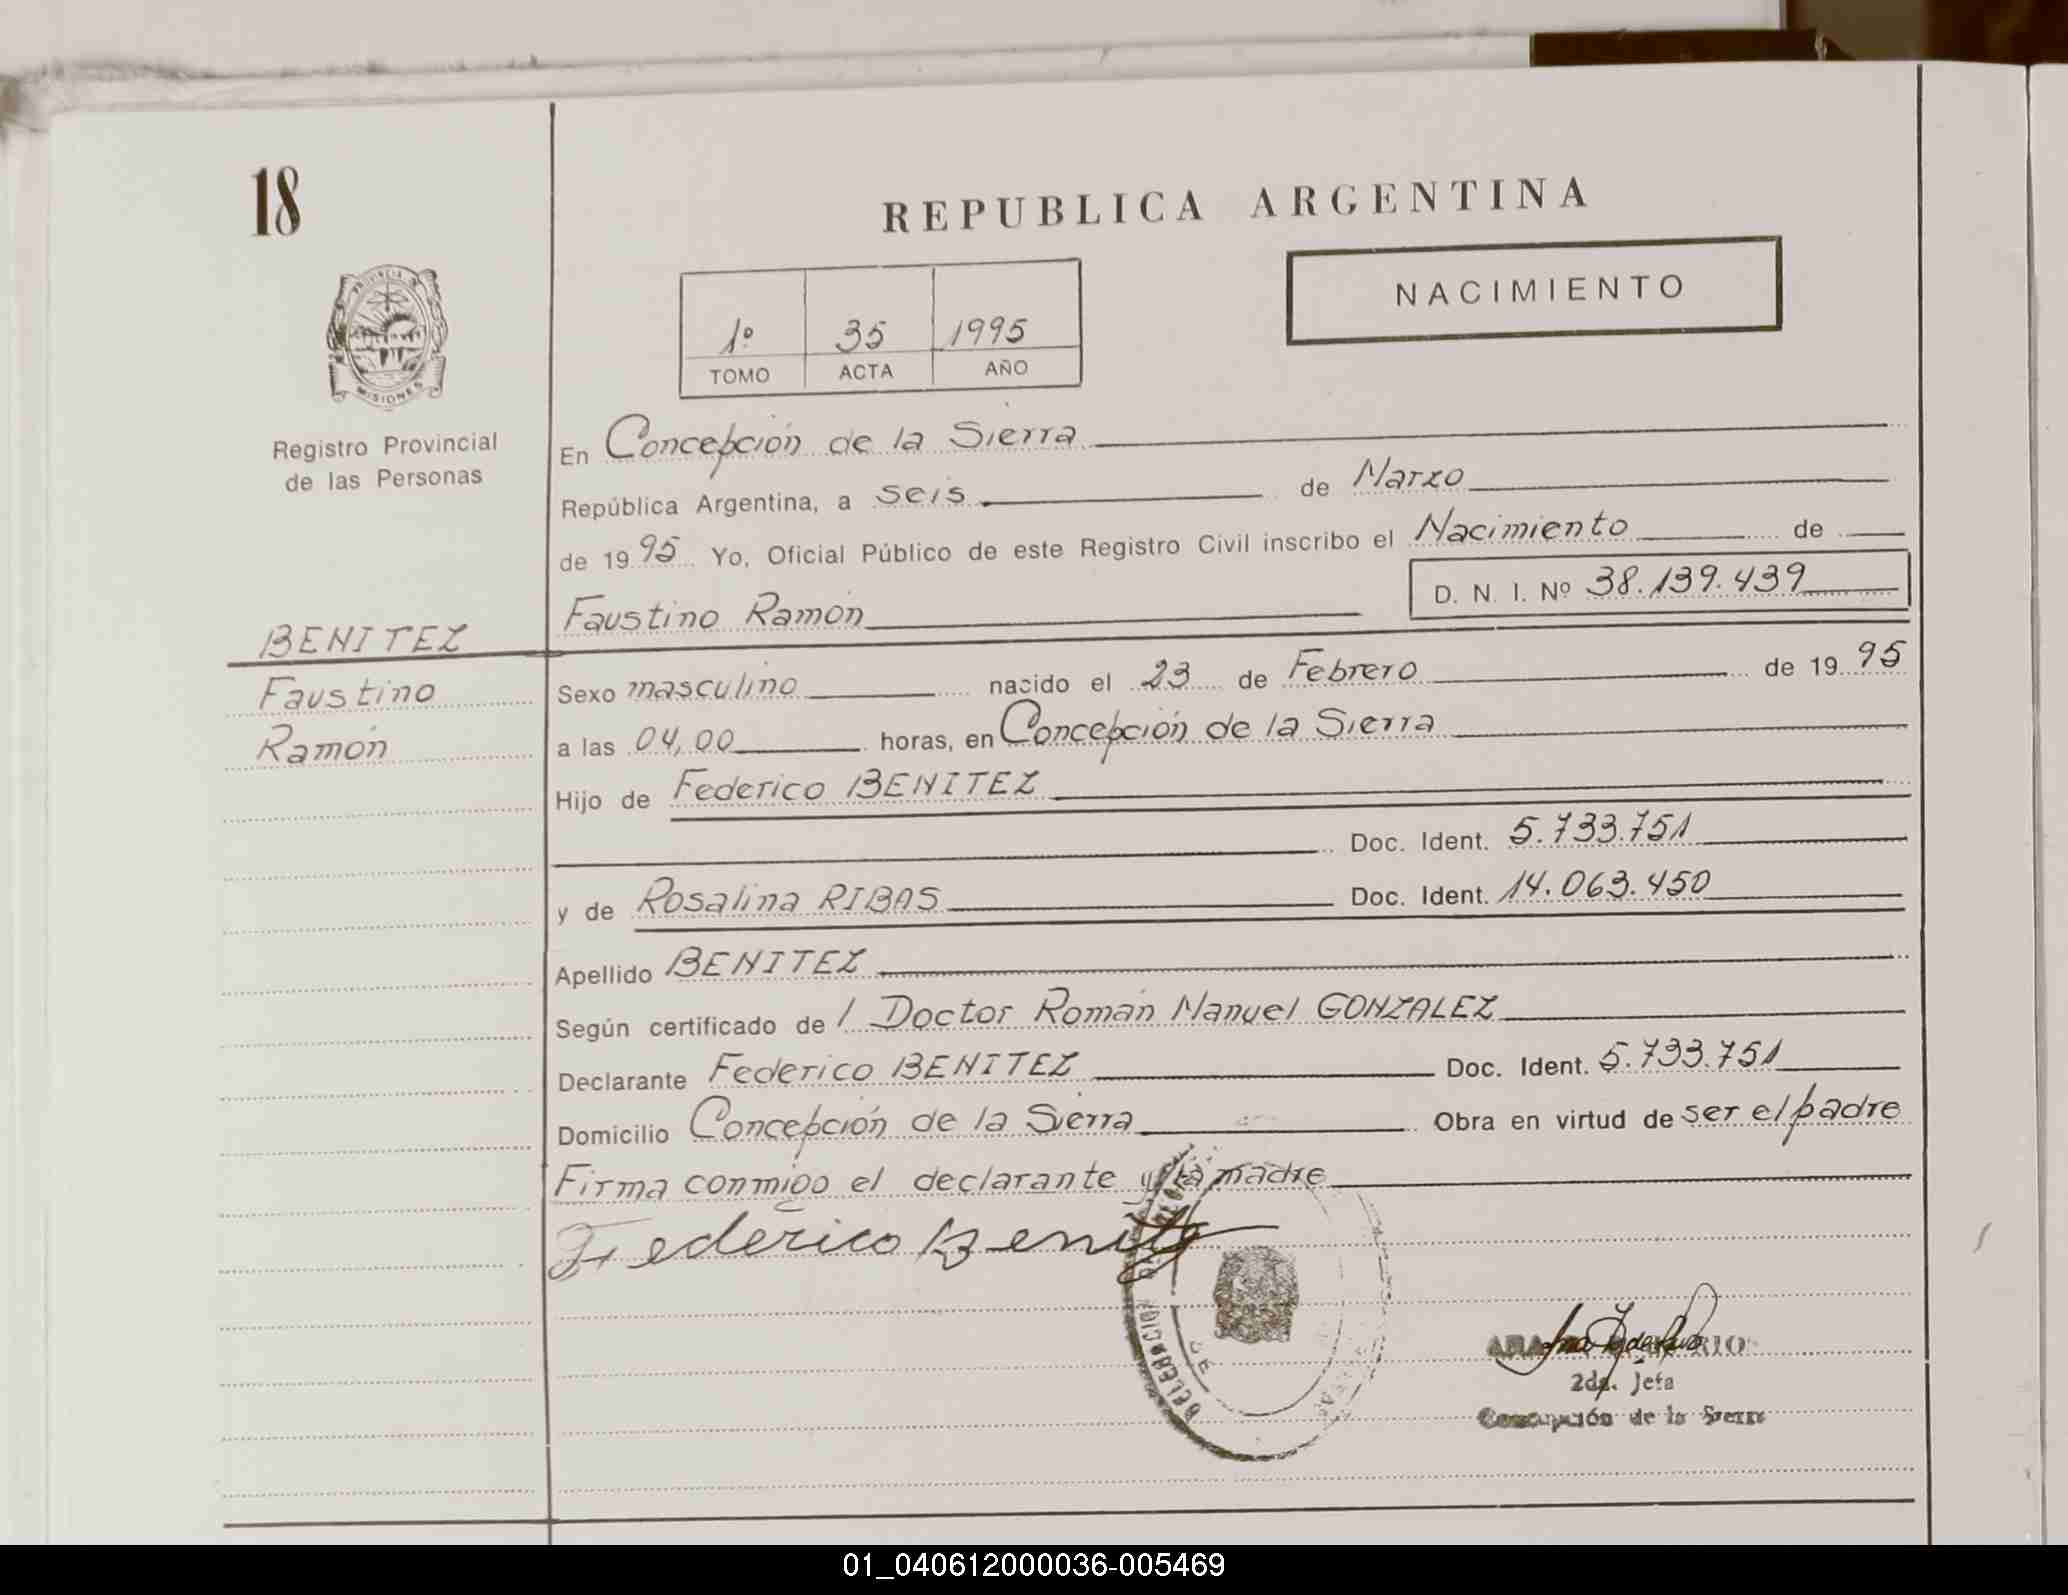 18
REPUBLICA ARGENTINA
NACIMIENTO
PROVINCIA DE
MISIONES
1º 35 1995
TOMO ACTA AÑO
Registro Provincial
de las Personas
En Concepción de la Sierra
República Argentina, a seis de Marzo
de 1995 Yo, Oficial Público de este Registro Civil inscribo el Nacimiento de
D. N. I. Nº 38.139.439
Faustino Ramón
BENITEZ
Faustino
Ramón
Sexo masculino nacido el 23 de Febrero de 1995
a las 04,00 horas, en Concepción de la Sierra
Hijo de Federico BENITEZ
Doc. Ident. 5.733.751
y de Rosalina RIBAS Doc. Ident. 14.063.450
Apellido BENITEZ
Según certificado de / Doctor Román Manuel GONZALEZ
Declarante Federico BENITEZ Doc. Ident. 5.733.751
Domicilio Concepción de la Sierra Obra en virtud de ser el padre
Firma conmigo el declarante y la madre
Federico Benitez
DELEGACION
DE
2da. Jefa
Concepción de la Sierra
01_040612000036-005469